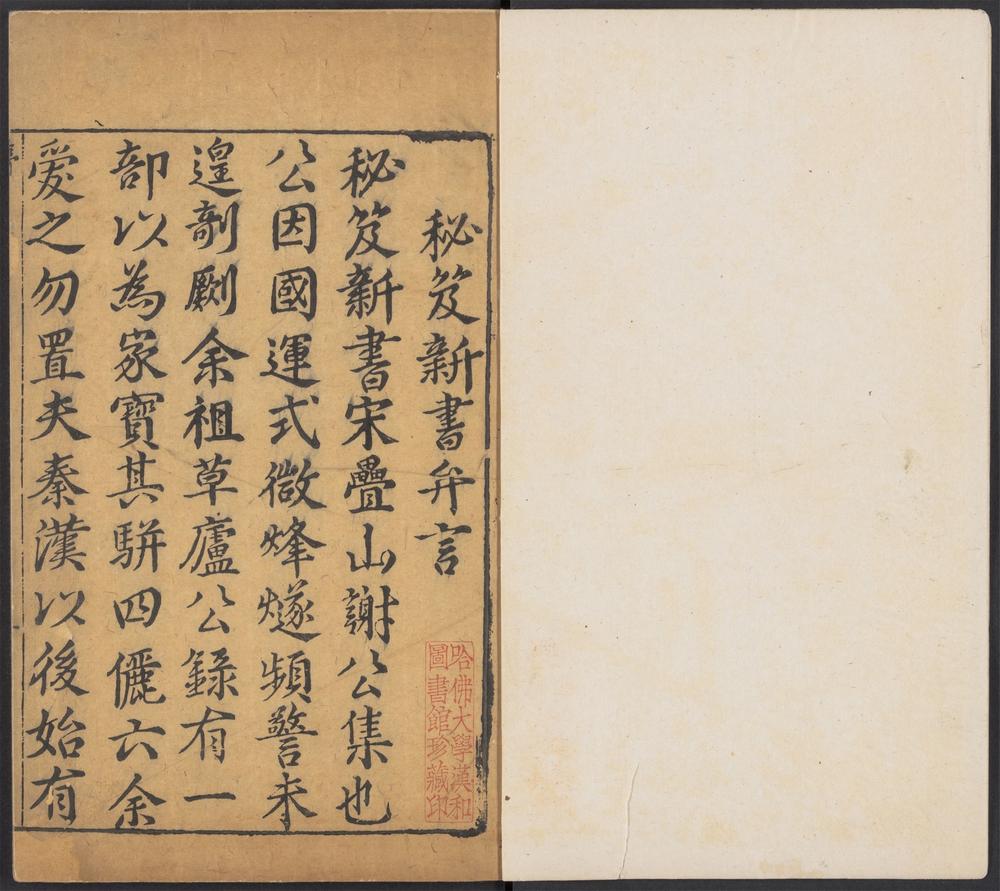 秘笈新書弁言
秘笈新書宋疊山謝公集也
公因國運式微烽燧頻警未
遑剞劂余祖草廬公錄有一
部以為家寶其駢四儷六余
爰之勿置夫秦漢以後始有
哈佛大學漢和
圖書館珍藏印